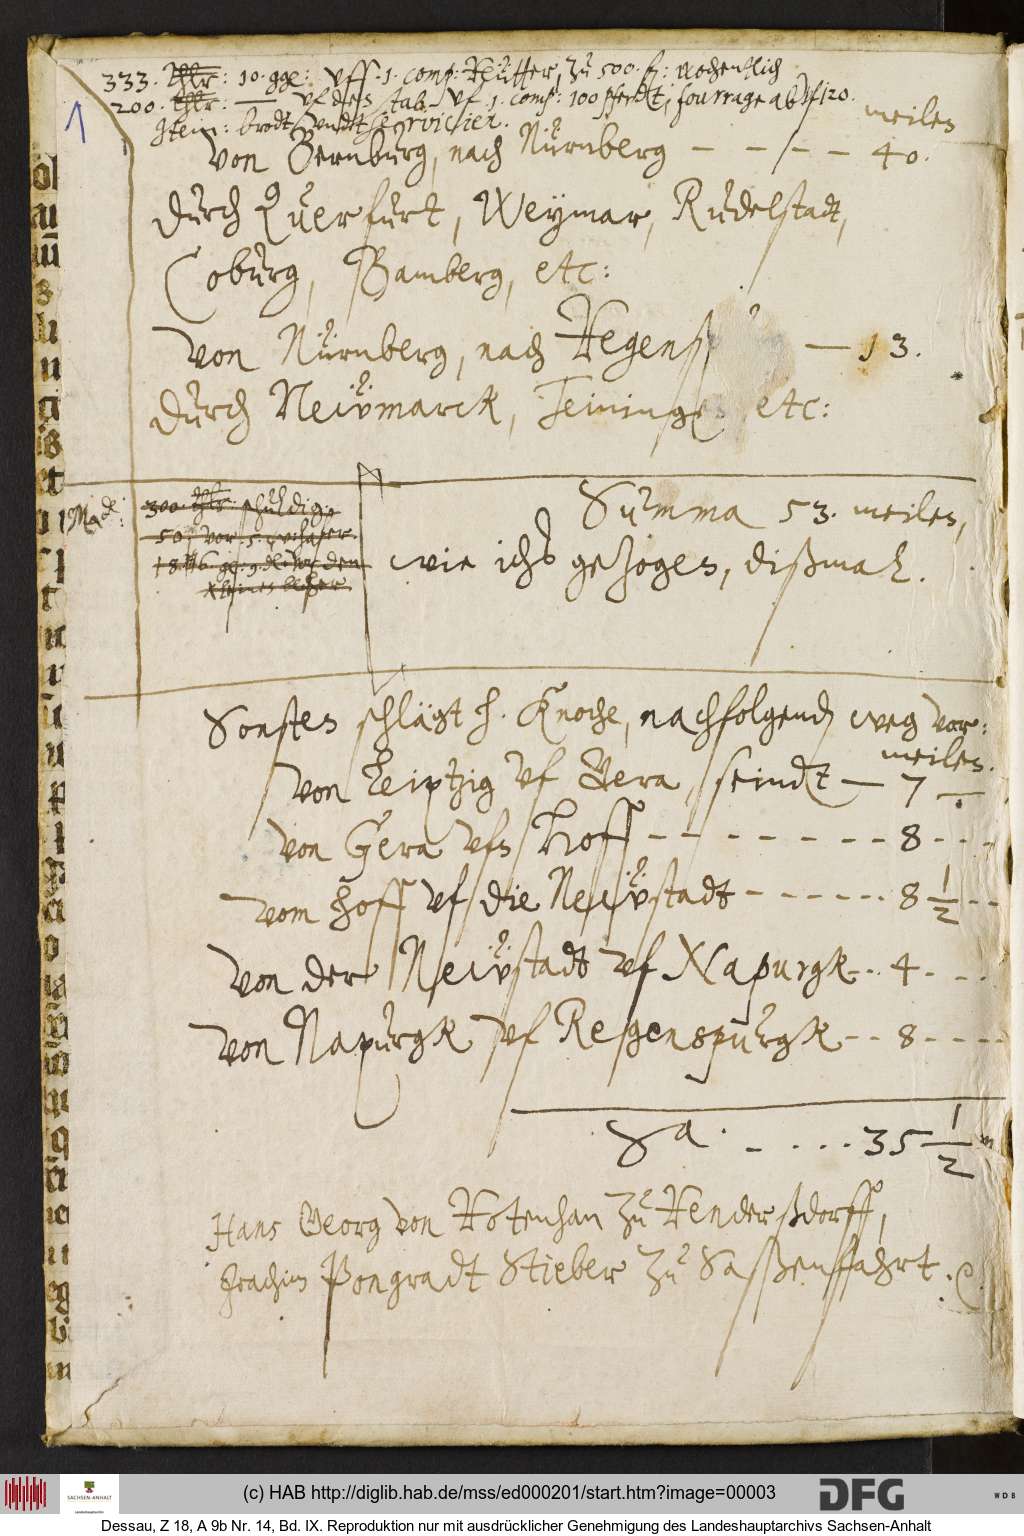 333. Thlr: 10. gge: uff .1. comp: Reütter, zu 500. fl: wochentlich
200. thlr: — uf den stab. uf .1. comp: 100 pferdt, fourrage ab uf 120.
Item: brodt undt servicien.
meilen
von Bernburg, nach Nürnberg – – – – 40.
durch Querfurt, Weymar, Rudelstadt,
Coburg, Bamberg, etc:
von Nürnberg, nach Regensp — 13.
durch Neümarck, Teiningen etc:
300. thlr. schuldige
50, vor 5. w. haser.
18
Summa 53. meilen,
wie ichs gezogen, dißmal.
Sonsten schlägt h. Knoche, nachfolgend weg vor:
meilen.
von Leiptzig uf Gera, seindt — 7 —
von Gera ufn Hoff – – – – – – – 8 – – –
vom Hoff uf die Neüstadt – – – – – 8 1/2 – –
von der Neüstadt uf Napurgk – – 4 – – –
von Napurgk uf Regenspurgk – – 8 – – – –
Sa. – . . . . 35 1/2 m
Hans Georg von Rotenhan zu Renderßdorff,
Joachim Pongradt Stieber zu Saßenfahrt.
1
(c) HAB http://diglib.hab.de/mss/ed000201/start.htm?image=00003
SACHSEN-ANHALT
Landeshauptarchiv
DFG
WDB
Dessau, Z 18, A 9b Nr. 14, Bd. IX. Reproduktion nur mit ausdrücklicher Genehmigung des Landeshauptarchivs Sachsen-Anhalt